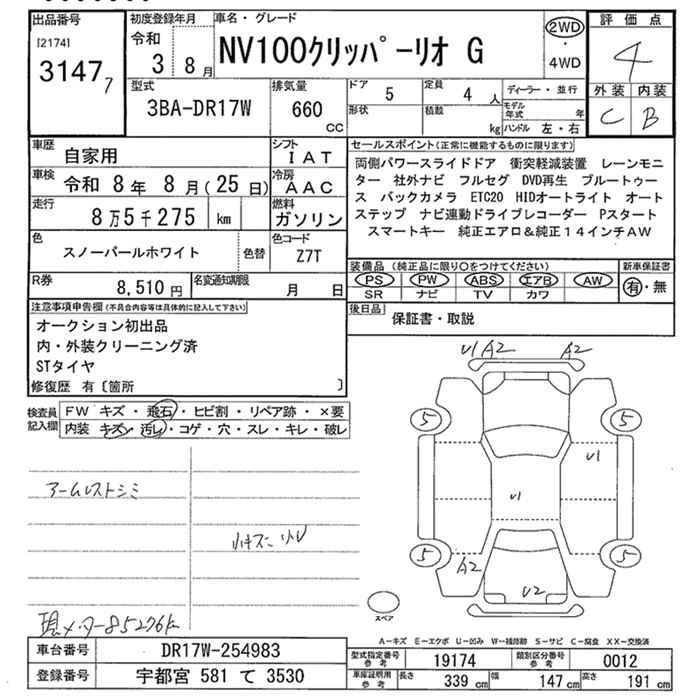 出品番号
[2174]
3147 7
初度登録年月
令和
3 8 月
車名・グレード
NV100クリッパーリオ G
2WD
・
4WD
評価点
4
外装 内装
C B
型式
3BA-DR17W
排気量
660
CC
ドア 5
定員 4 人
形状
積数 kg
ディーラー・並行
モデル年式 年
ハンドル 左・右
車歴
自家用
シフト
IAT
車検
令和 8 年 8 月(25 日)
冷房
AAC
走行
8 万 5 千 275 km
燃料
ガソリン
色
スノーパールホワイト
色替
色コード
Z7T
R券
8,510 円
名変通知期限
月 日
セールスポイント(正常に機能するものに限ります)
両側パワースライドドア 衝突軽減装置 レーンモニ
ター 社外ナビ フルセグ DVD再生 ブルートゥー
ス バックカメラ ETC20 HIDオートライト オート
ステップ ナビ連動ドライブレコーダー Pスタート
スマートキー 純正エアロ&純正14インチAW
装備品(純正品に限り○をつけてください)
新車保証書
PS PW ABS エアB AW
SR ナビ TV カワ
有・無
後日品
保証書・取説
注意事項申告欄(不具合内容等は具体的に記入して下さい)
オークション初出品
内・外装クリーニング済
STタイヤ
修復歴 有〔箇所 〕
検査員
記入欄
FW キズ・飛石・ヒビ割・リペア跡・×要
内装 キズ・汚レ・コゲ・穴・スレ・キレ・破レ
アームレストシミ
小キズ 小U
現メーター85276k
U1 A2 A2
5 5
U1
U1
5 5
A2
U2
スペア
A-キズ E-エクボ U-凹み W-補修跡 S-サビ C-腐食 XX-交換済
車台番号
DR17W-254983
登録番号
宇都宮 581 て 3530
型式指定番号
参考
19174
類別区分番号
参考
0012
車庫証明用
参考
長さ 339 cm 幅 147 cm 高さ 191 cm